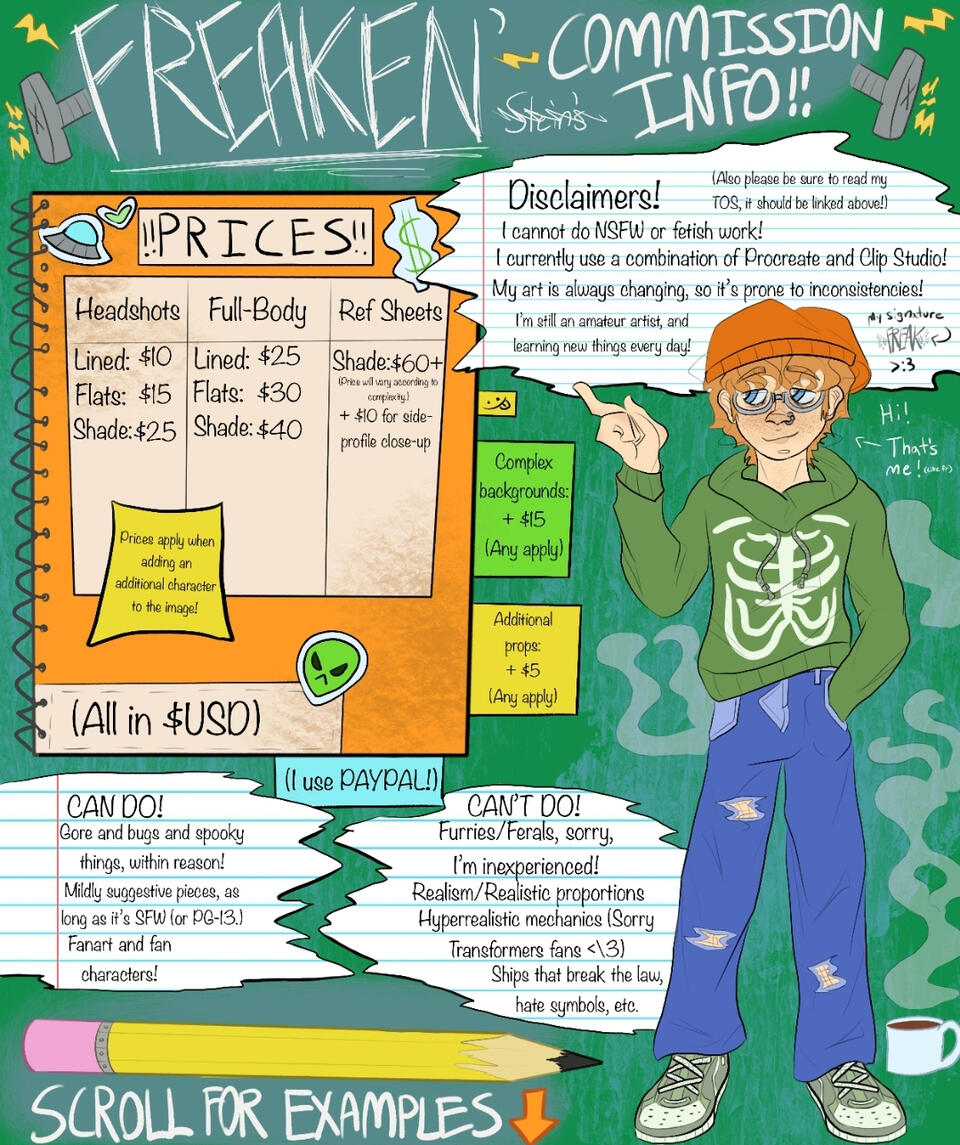 FREAKEN'
Stein's
COMMISSION
INFO!!
Disclaimers!
(Also please be sure to read my
TOS, it should be linked above!)
I cannot do NSFW or fetish work!
I currently use a combination of Procreate and Clip Studio!
My art is always changing, so it's prone to inconsistencies!
I'm still an amateur artist, and
learning new things every day!
My signature
FREAK
>:3
Hi!
That's
me!
!!PRICES!!
$
Headshots
Lined: $10
Flats: $15
Shade:$25
Full-Body
Lined: $25
Flats: $30
Shade: $40
Ref Sheets
Shade:$60+
(Price will vary according to
complexity.)
+ $10 for side-
profile close-up
Prices apply when
adding an
additional character
to the image!
Complex
backgrounds:
+ $15
(Any apply)
Additional
props:
+ $5
(Any apply)
(All in $USD)
(I use PAYPAL!)
CAN DO!
Gore and bugs and spooky
things, within reason!
Mildly suggestive pieces, as
long as it's SFW (or PG-13.)
Fanart and fan
characters!
CAN'T DO!
Furries/Ferals, sorry,
I'm inexperienced!
Realism/Realistic proportions
Hyperrealistic mechanics (Sorry
Transformers fans <\3)
Ships that break the law,
hate symbols, etc.
SCROLL FOR EXAMPLES